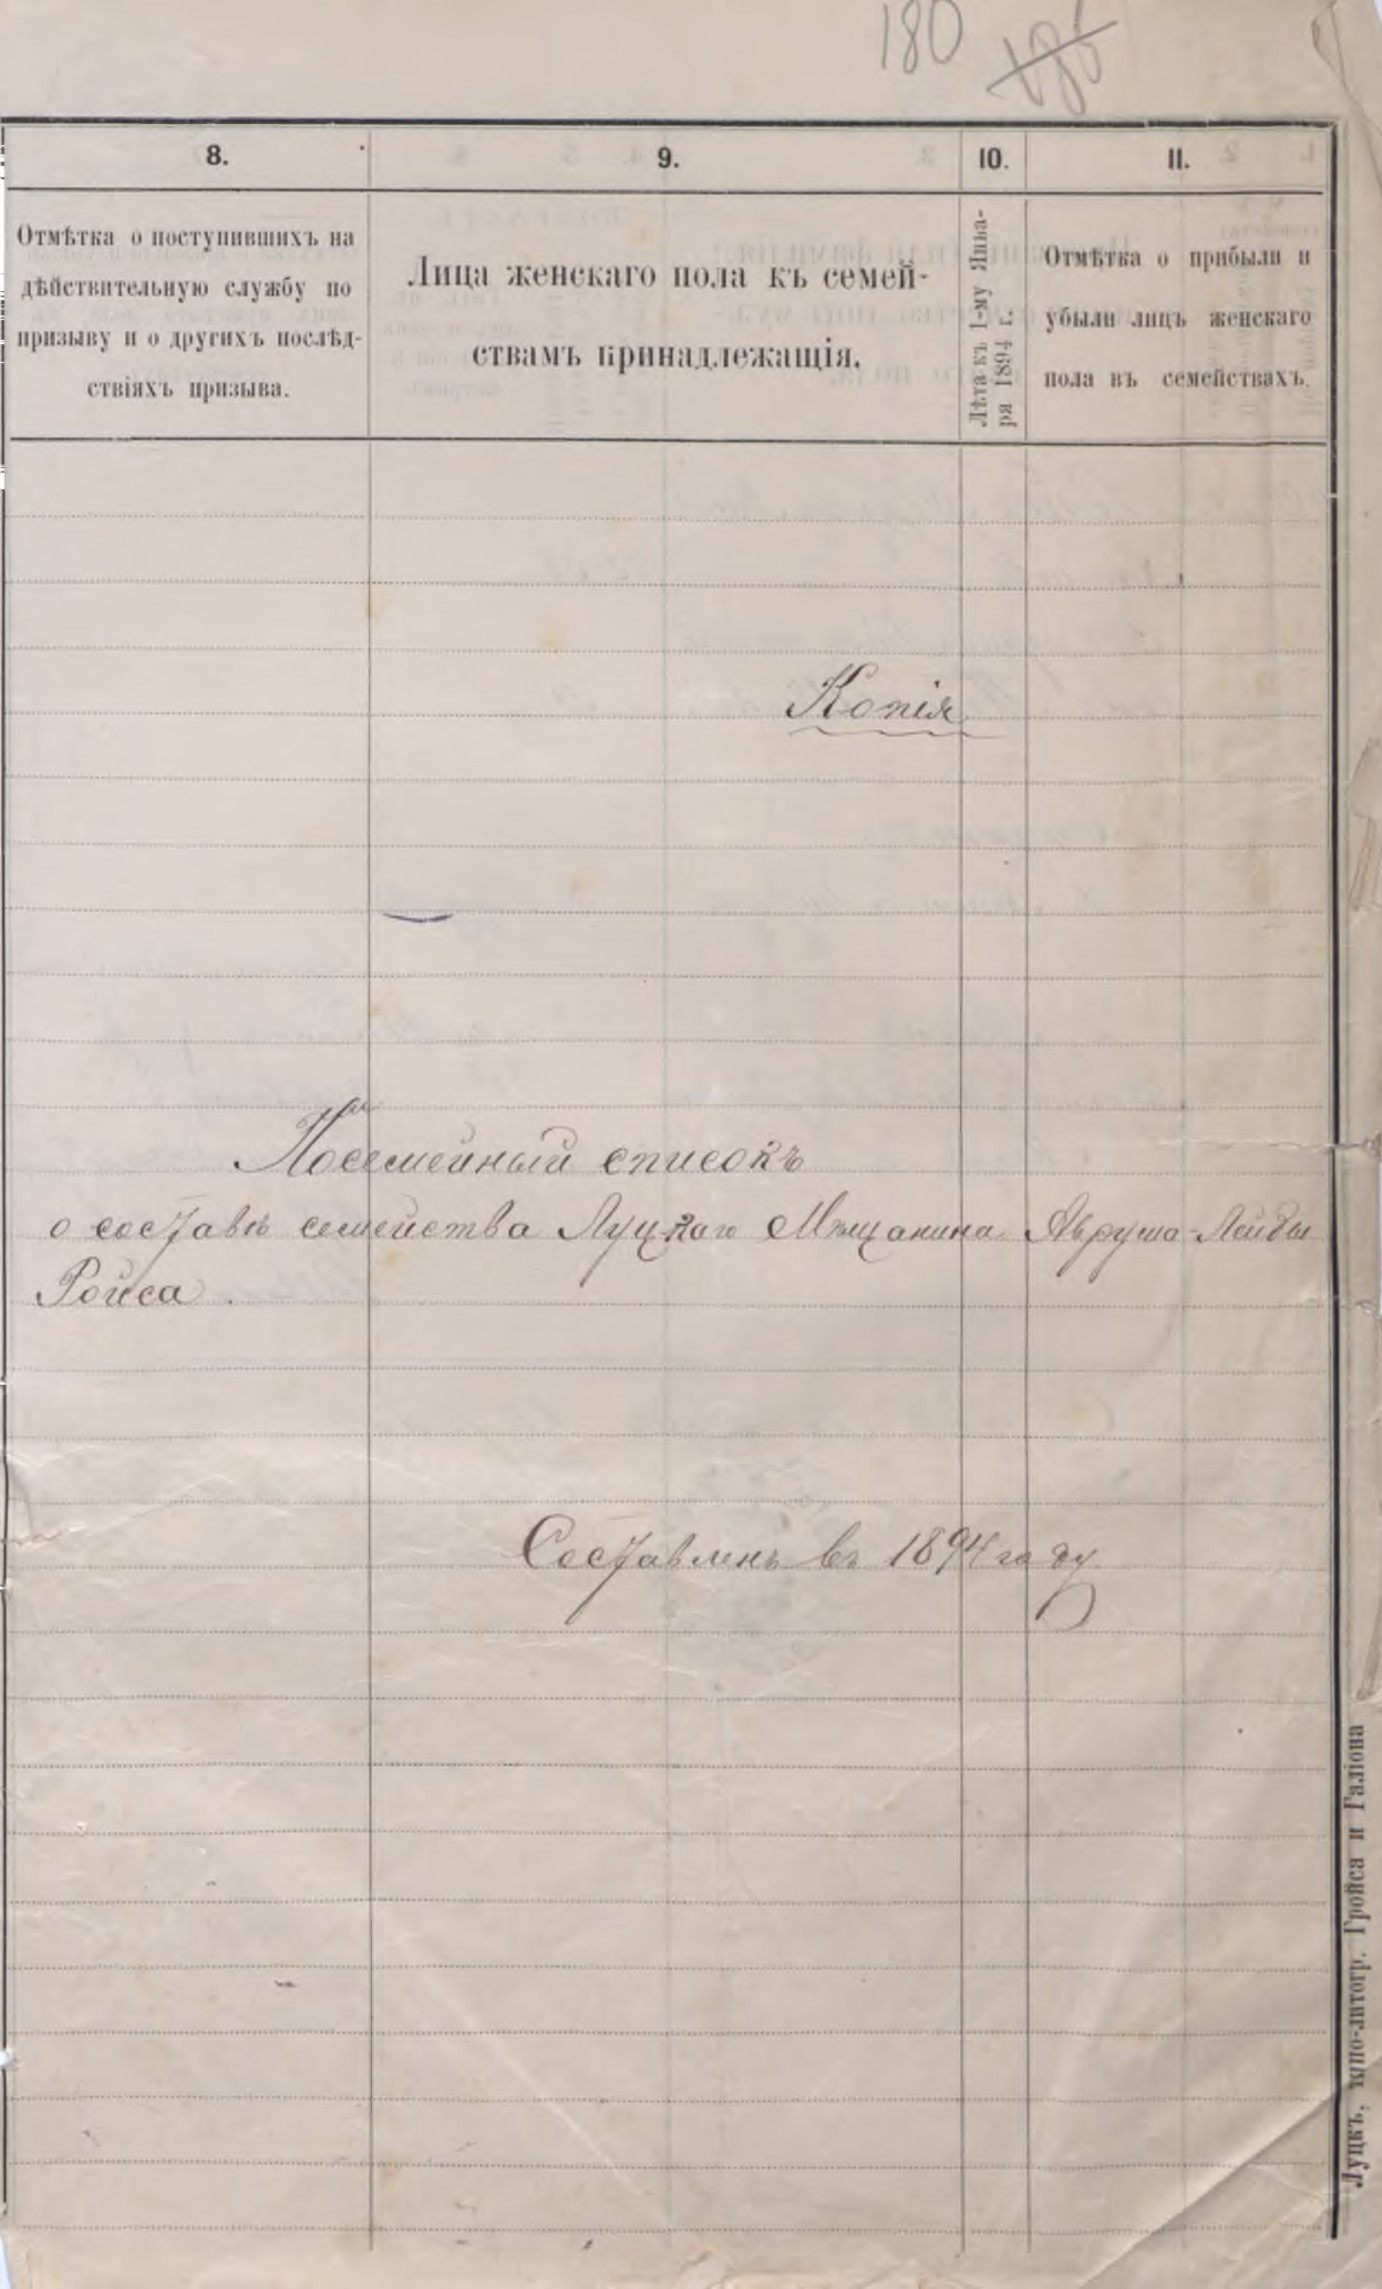 180
8.
9.
10.
11.
Отмѣтка о поступившихъ на
дѣйствительную службу по
призыву и о другихъ послѣд-
ствіяхъ призыва.
Лица женскаго пола къ семей-
ствамъ принадлежащія.
Лѣта къ 1-му Янва-
ря 1894 г.
Отмѣтка о прибыли и
убыли лицъ женскаго
пола въ семействахъ.
Копія
Посемейный списокъ
о составѣ семейства Луцкаго Мѣщанина Аврума-Лейбы
Ройса.
Составленъ въ 1894 году
Луцкъ, типо-литогр. Гройса и Галіона